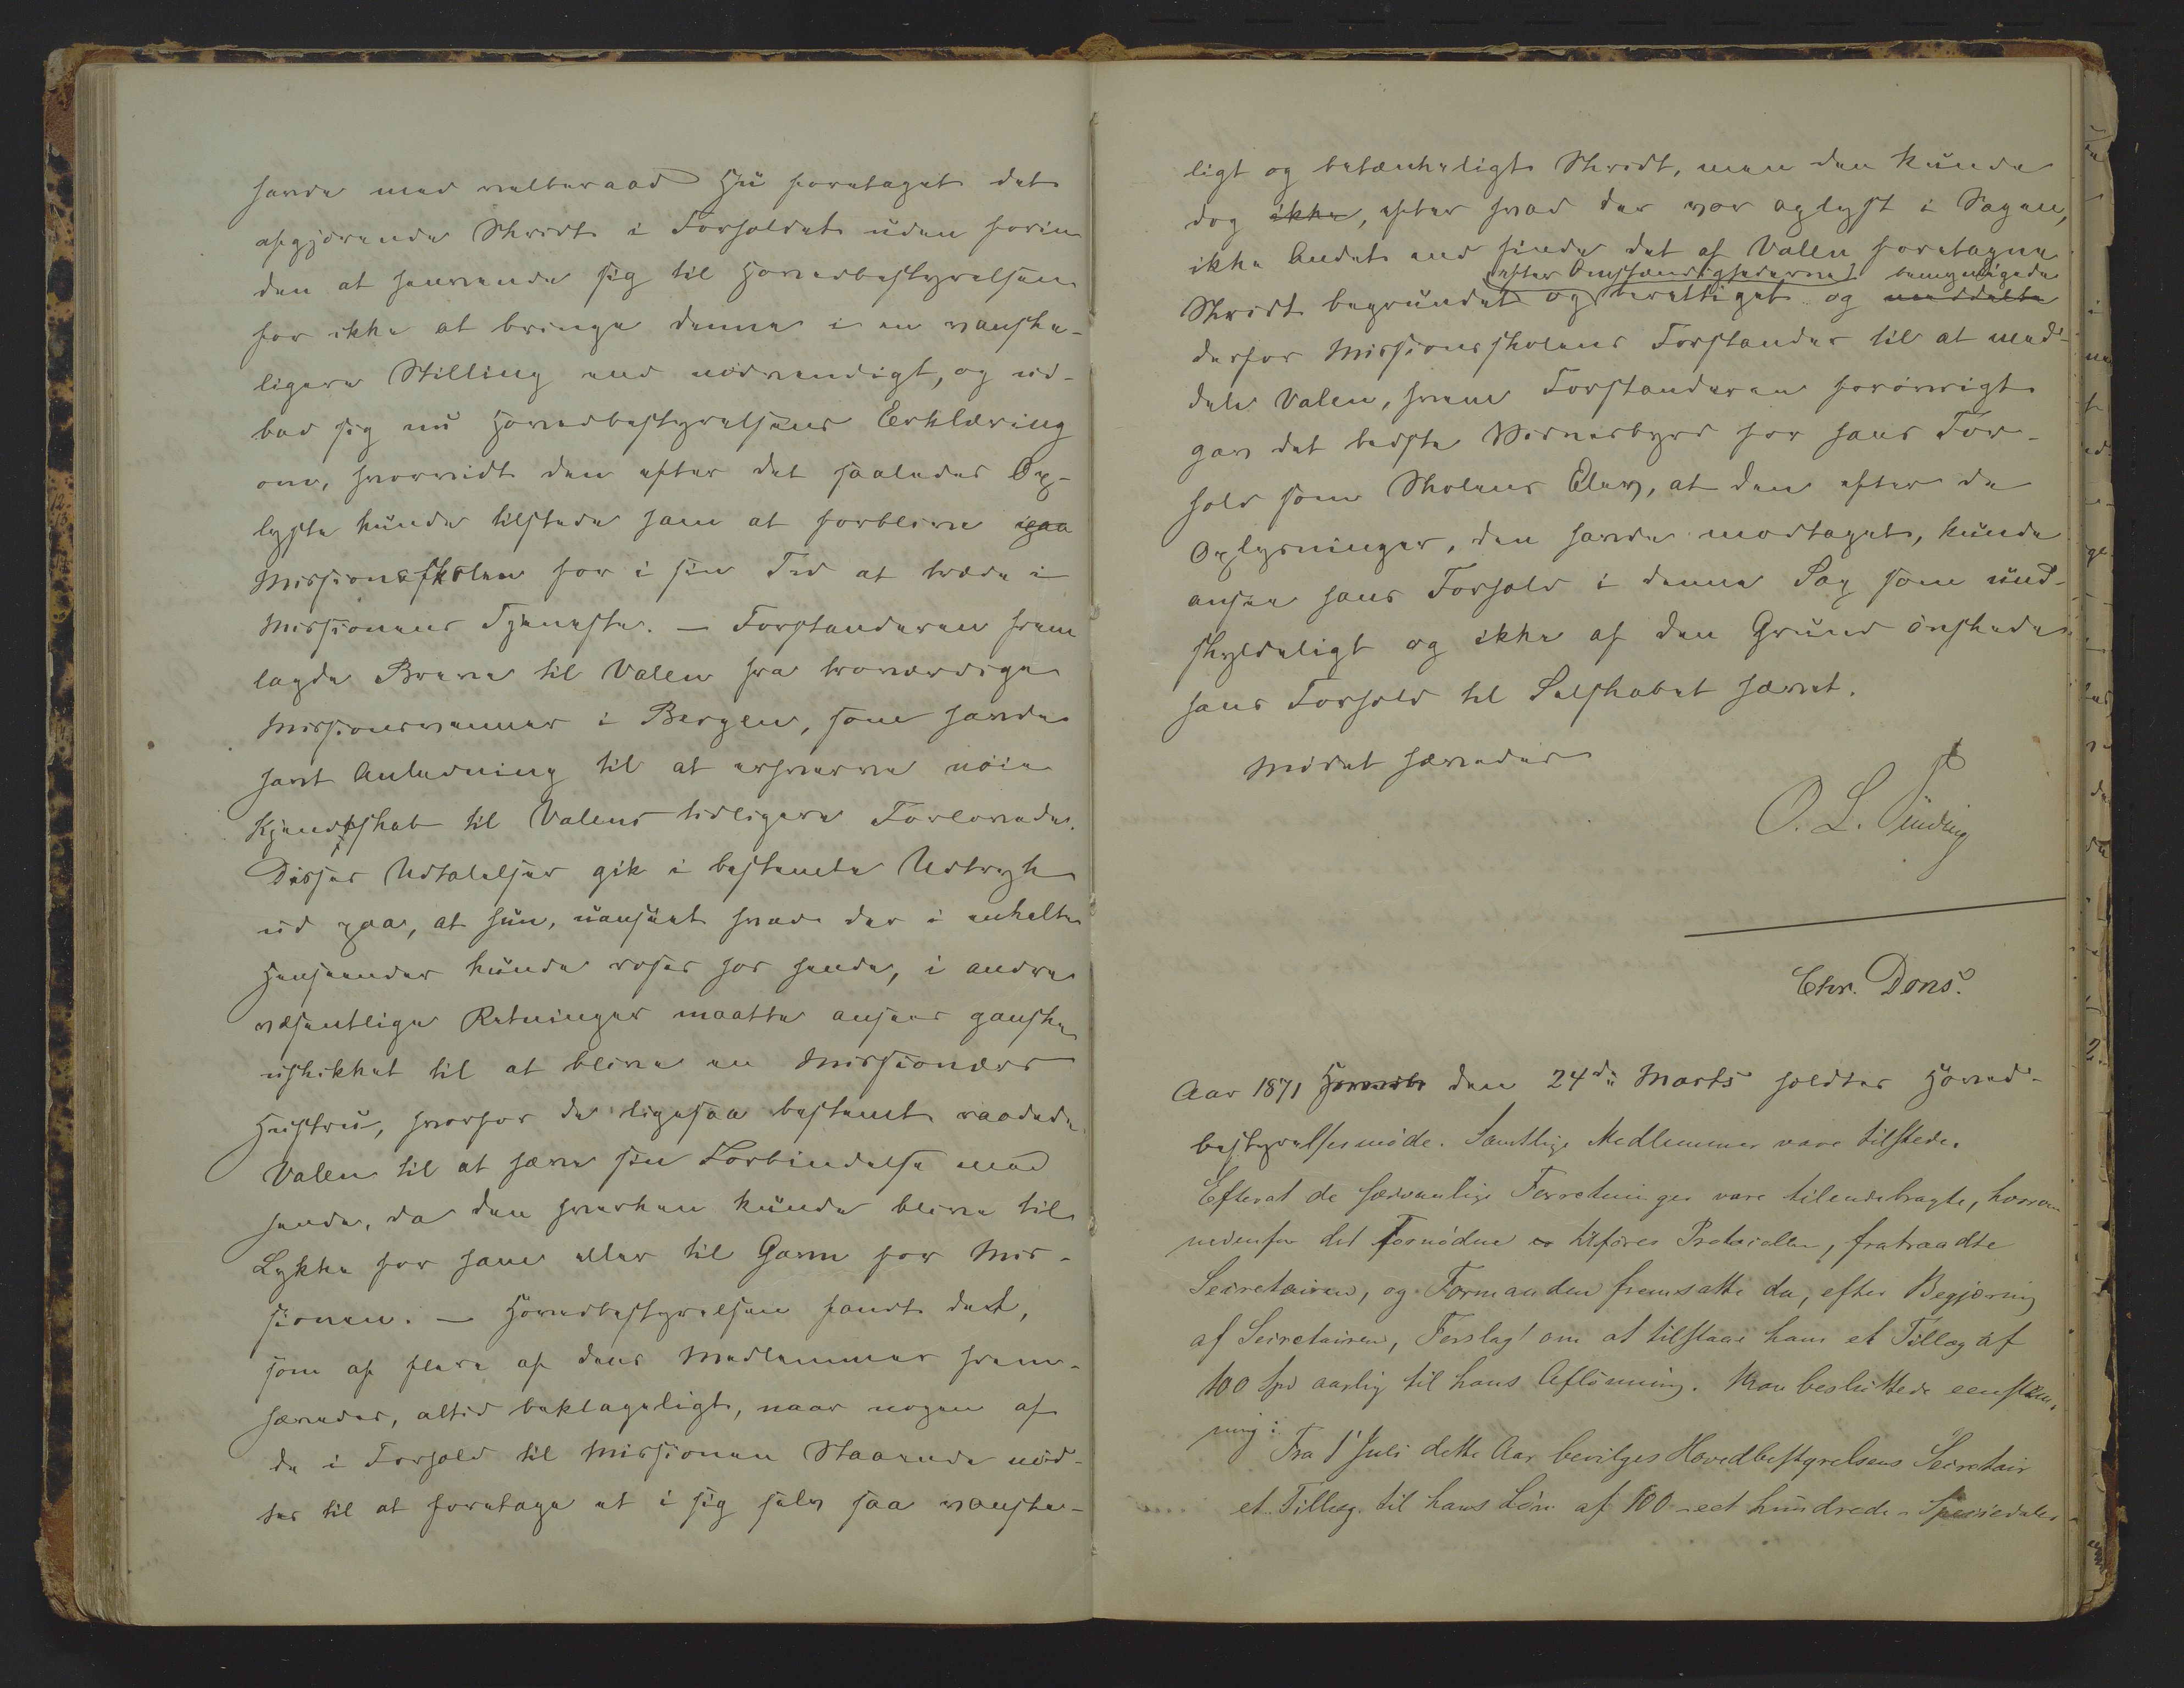 havde med velberaad Hu foretaget det
afgjörende Skridt i Forholdet uden forin
den at henvende sig til Hovedbestyrelsen
for ikke at bringe denne i en vanske-
ligere Stilling end nödvendigt, og ud-
bad sig nu Hovedbestyrelsens Erklæring
om, hvorvidt den efter det saaledes Op-
lyste kunde tilstede ham at forblive paa
Missionsskolen for i sin Tid at træde i
Missionens Tjeneste. — Forstanderen frem
lagde Breve til Valen fra troværdige
Missionsvenner i Bergen, som havde
havt Anledning til at erhverve nöie
Kjendskab til Valens tidligere Forlovede.
Disses Udtalelser gik i bestemte Udtryk
ud paa, at hun, uanseet hvad der i enkelte
Henseender kunde roses hos hende, i andre
væsentlige Retninger maatte ansees ganske
uskikket til at blive en Missionærs
Hustru, hvorfor de ligesaa bestemt raadede
Valen til at hæve sin Forbindelse med
hende, da den hverken kunde blive til
Lykke for ham eller til Gavn for Mis-
sionen. — Hovedbestyrelsen fandt det,
som af flere af dens Medlemmer frem-
hævedes, altid beklageligt, naar nogen af
de i Forhold til Missionen Staaende nöd-
tes til at foretage et i sig selv saa vanske-
ligt og betænkeligt Skridt, men den kunde
dog ikke, efter hvad der var oplyst i Sagen,
ikke Andet end finde det af Valen foretagne
efter Omstændighederne bemyndigede
Skridt begrundet og berettiget og meddelte
derfor Missionsskolens Forstander til at med-
dele Valen, hvem Forstanderen forövrigt
gav det bedste Vidnesbyrd for hans For-
hold som Skolens Elev, at den efter de
Oplysninger, den havde modtaget, kunde
ansee hans Forhold i denne Sag som und-
skyldeligt og ikke af den Grund önskede
hans Forhold til Selskabet hævet.
Mödet hævedes
O. L. Sinding
Chr. Dons.
Aar 1871 den 24de Marts holdtes Hoved-
bestyrelsesmöde. Samtlige Medlemmer vare tilstede.
Efterat de sædvanlige Forretninger vare tilendebragte, hvorom
nedenfor det Fornödne er tilföres Protocollen, fratraadte
Secretairen, og Formanden fremsatte da, efter Begjæring
af Secretairen, Forslag om at tilstaae ham et Tillæg af
100 Spd aarlig til hans Aflönning. Man besluttede eenstem-
mig:
Fra 1 Juli dette Aar bevilges Hovedbestyrelsens Secretair
et Tillæg til hans Lön af 100 - eet hundrede - Speciedaler